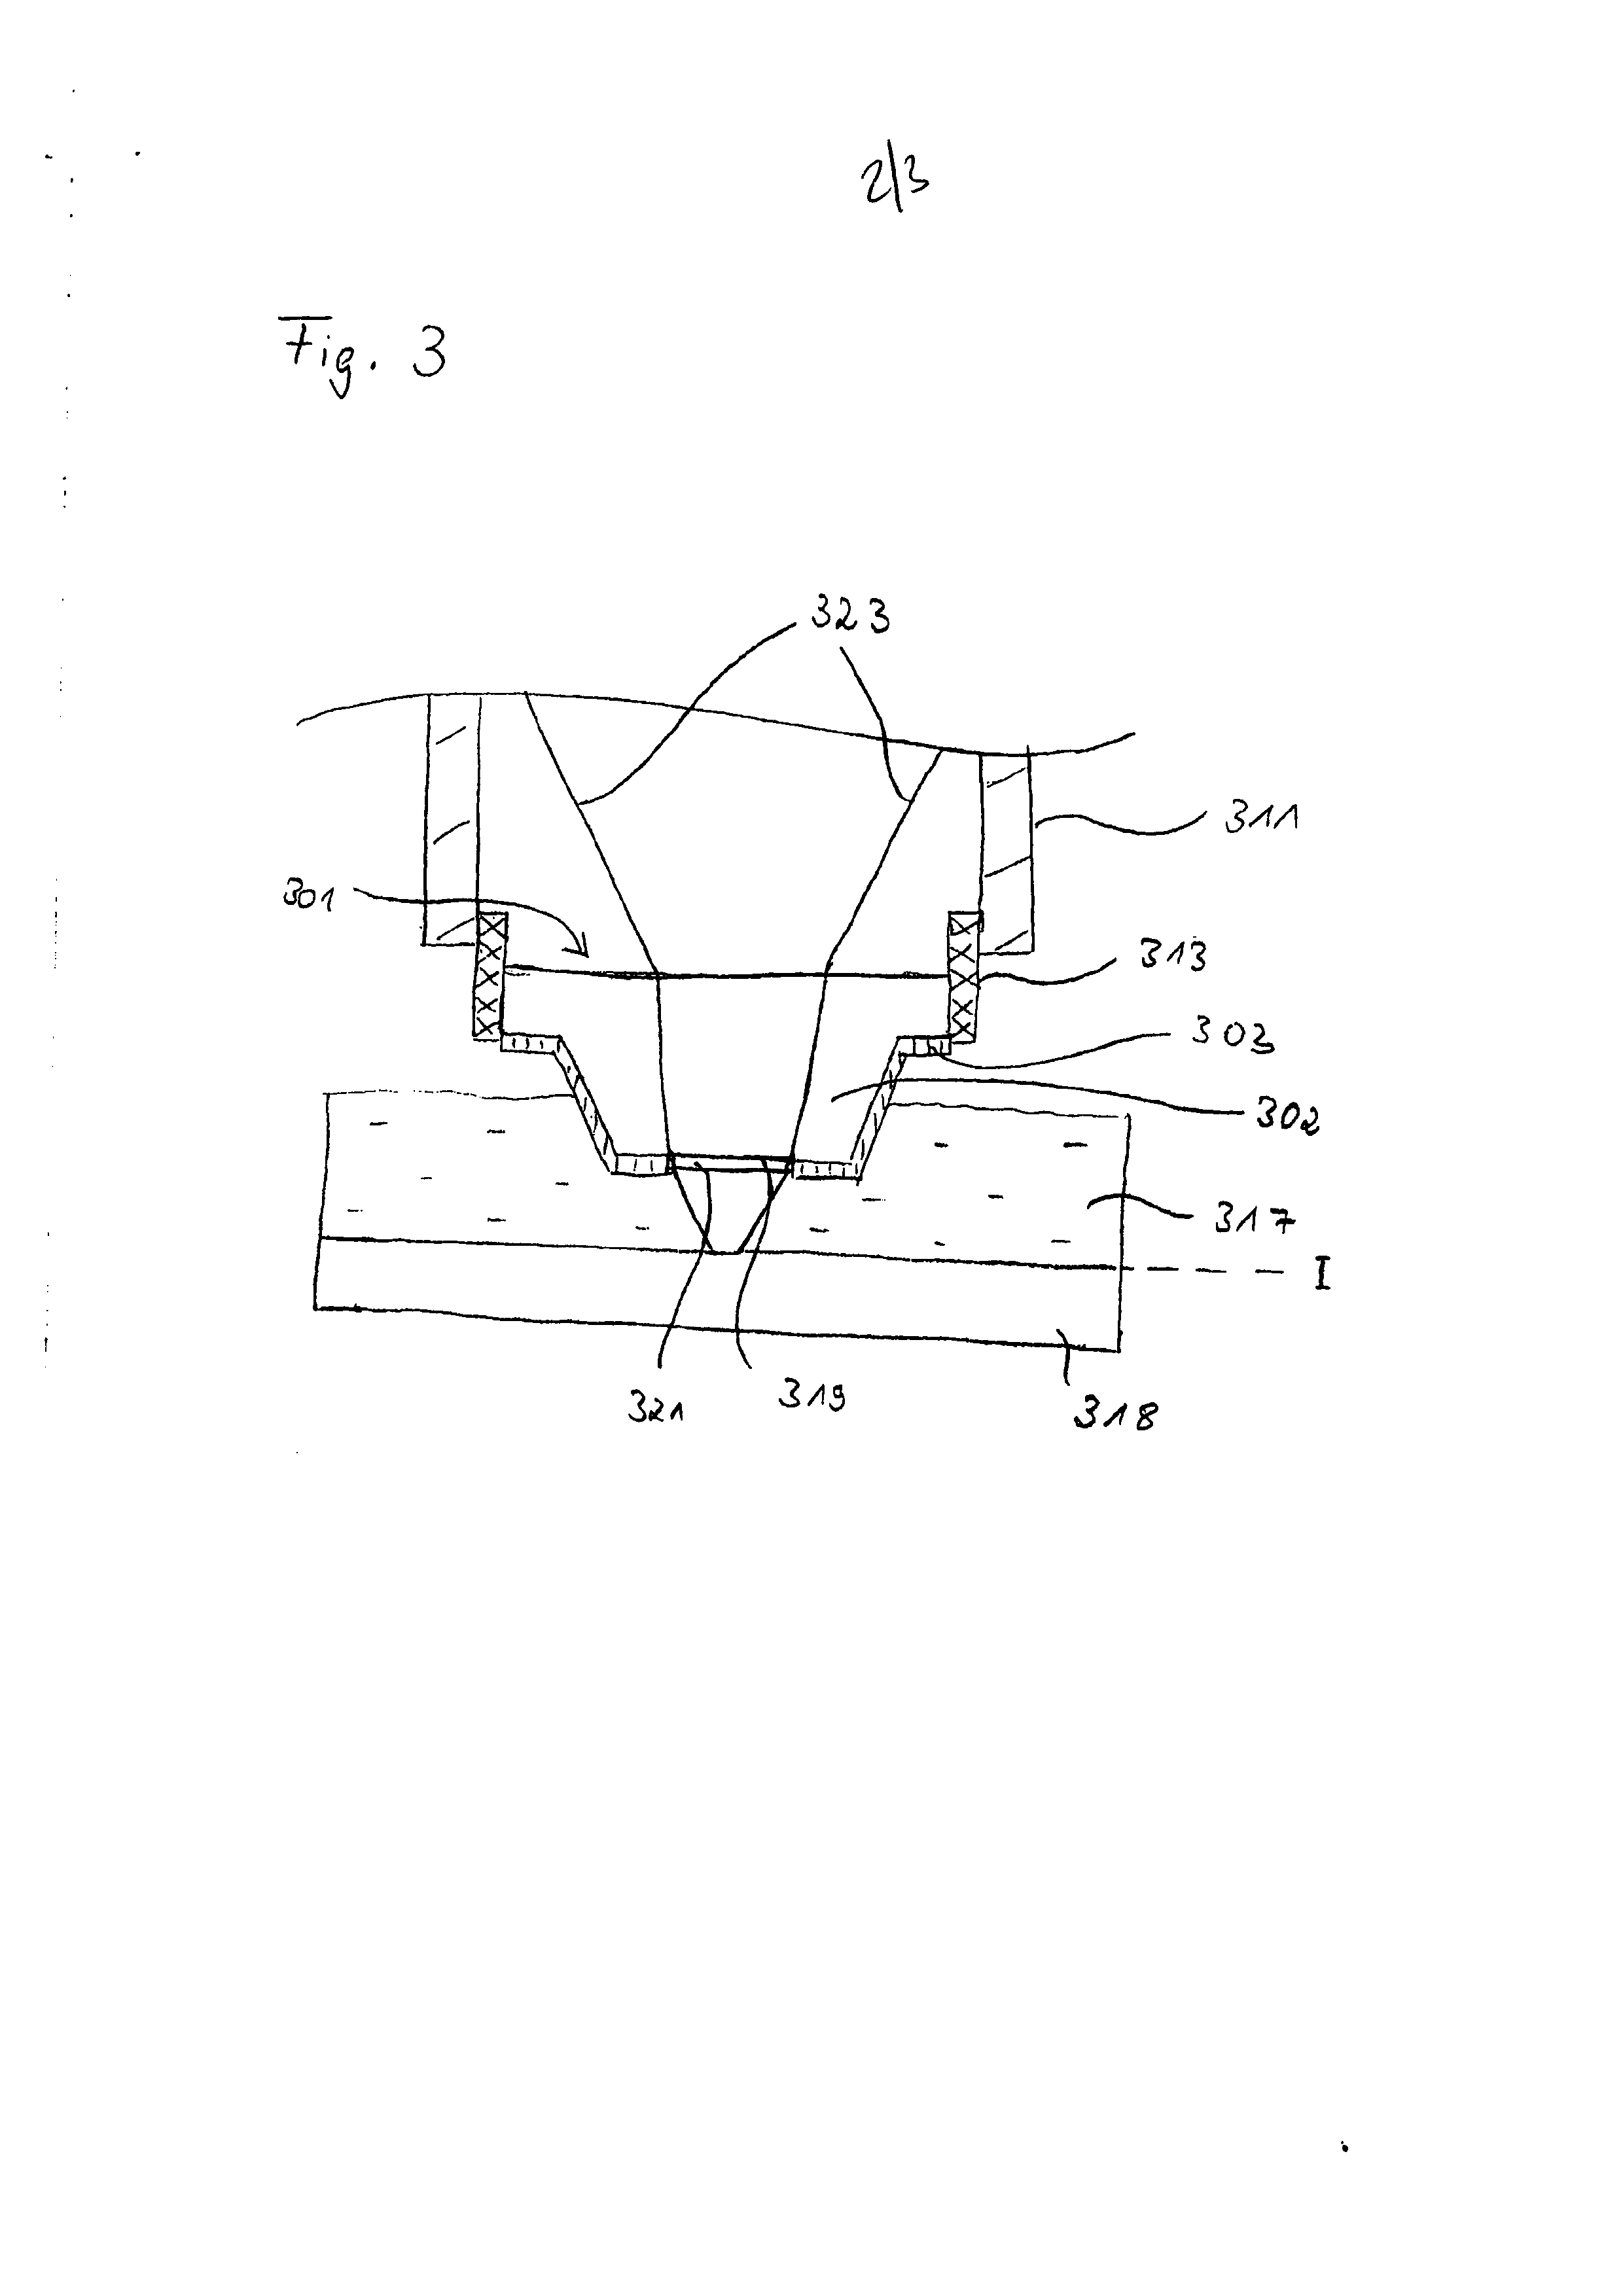 2/3
Fig. 3
323
311
301
313
303
302
317
I
321
319
318